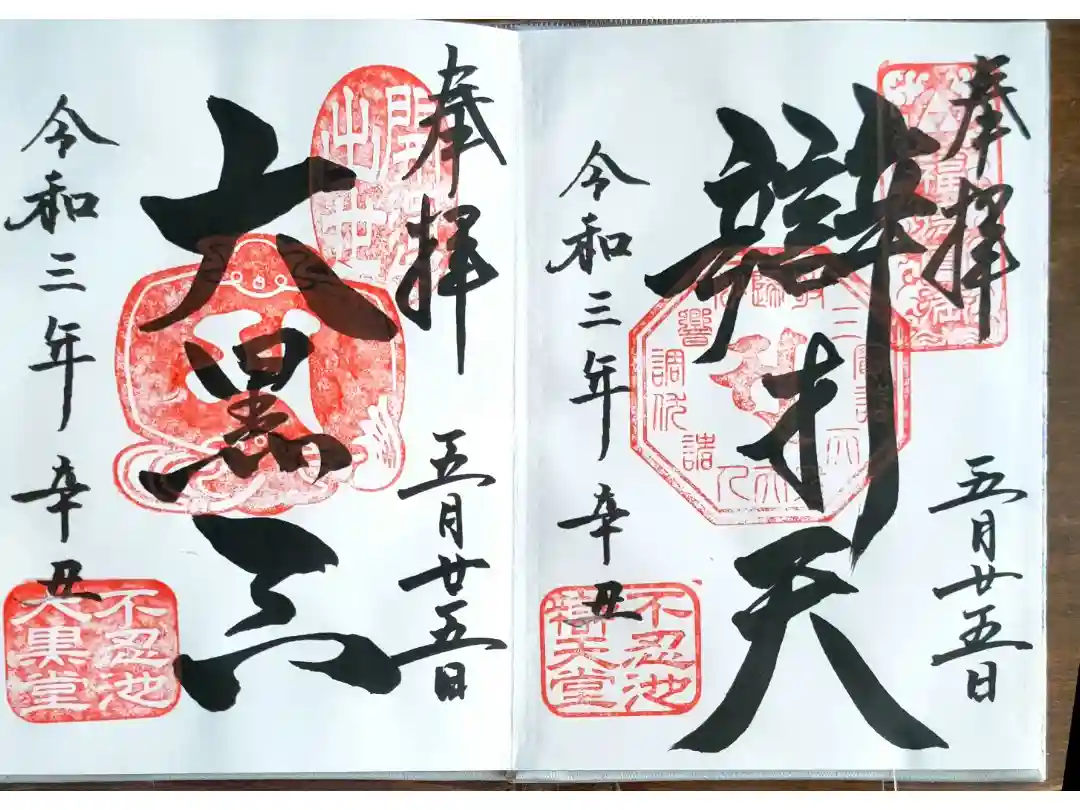 奉拝
辯才天
令和三年 辛丑
五月廿五日
不忍池
辯天堂
奉拝
大黒天
令和三年 辛丑
五月廿五日
不忍池
大黒堂